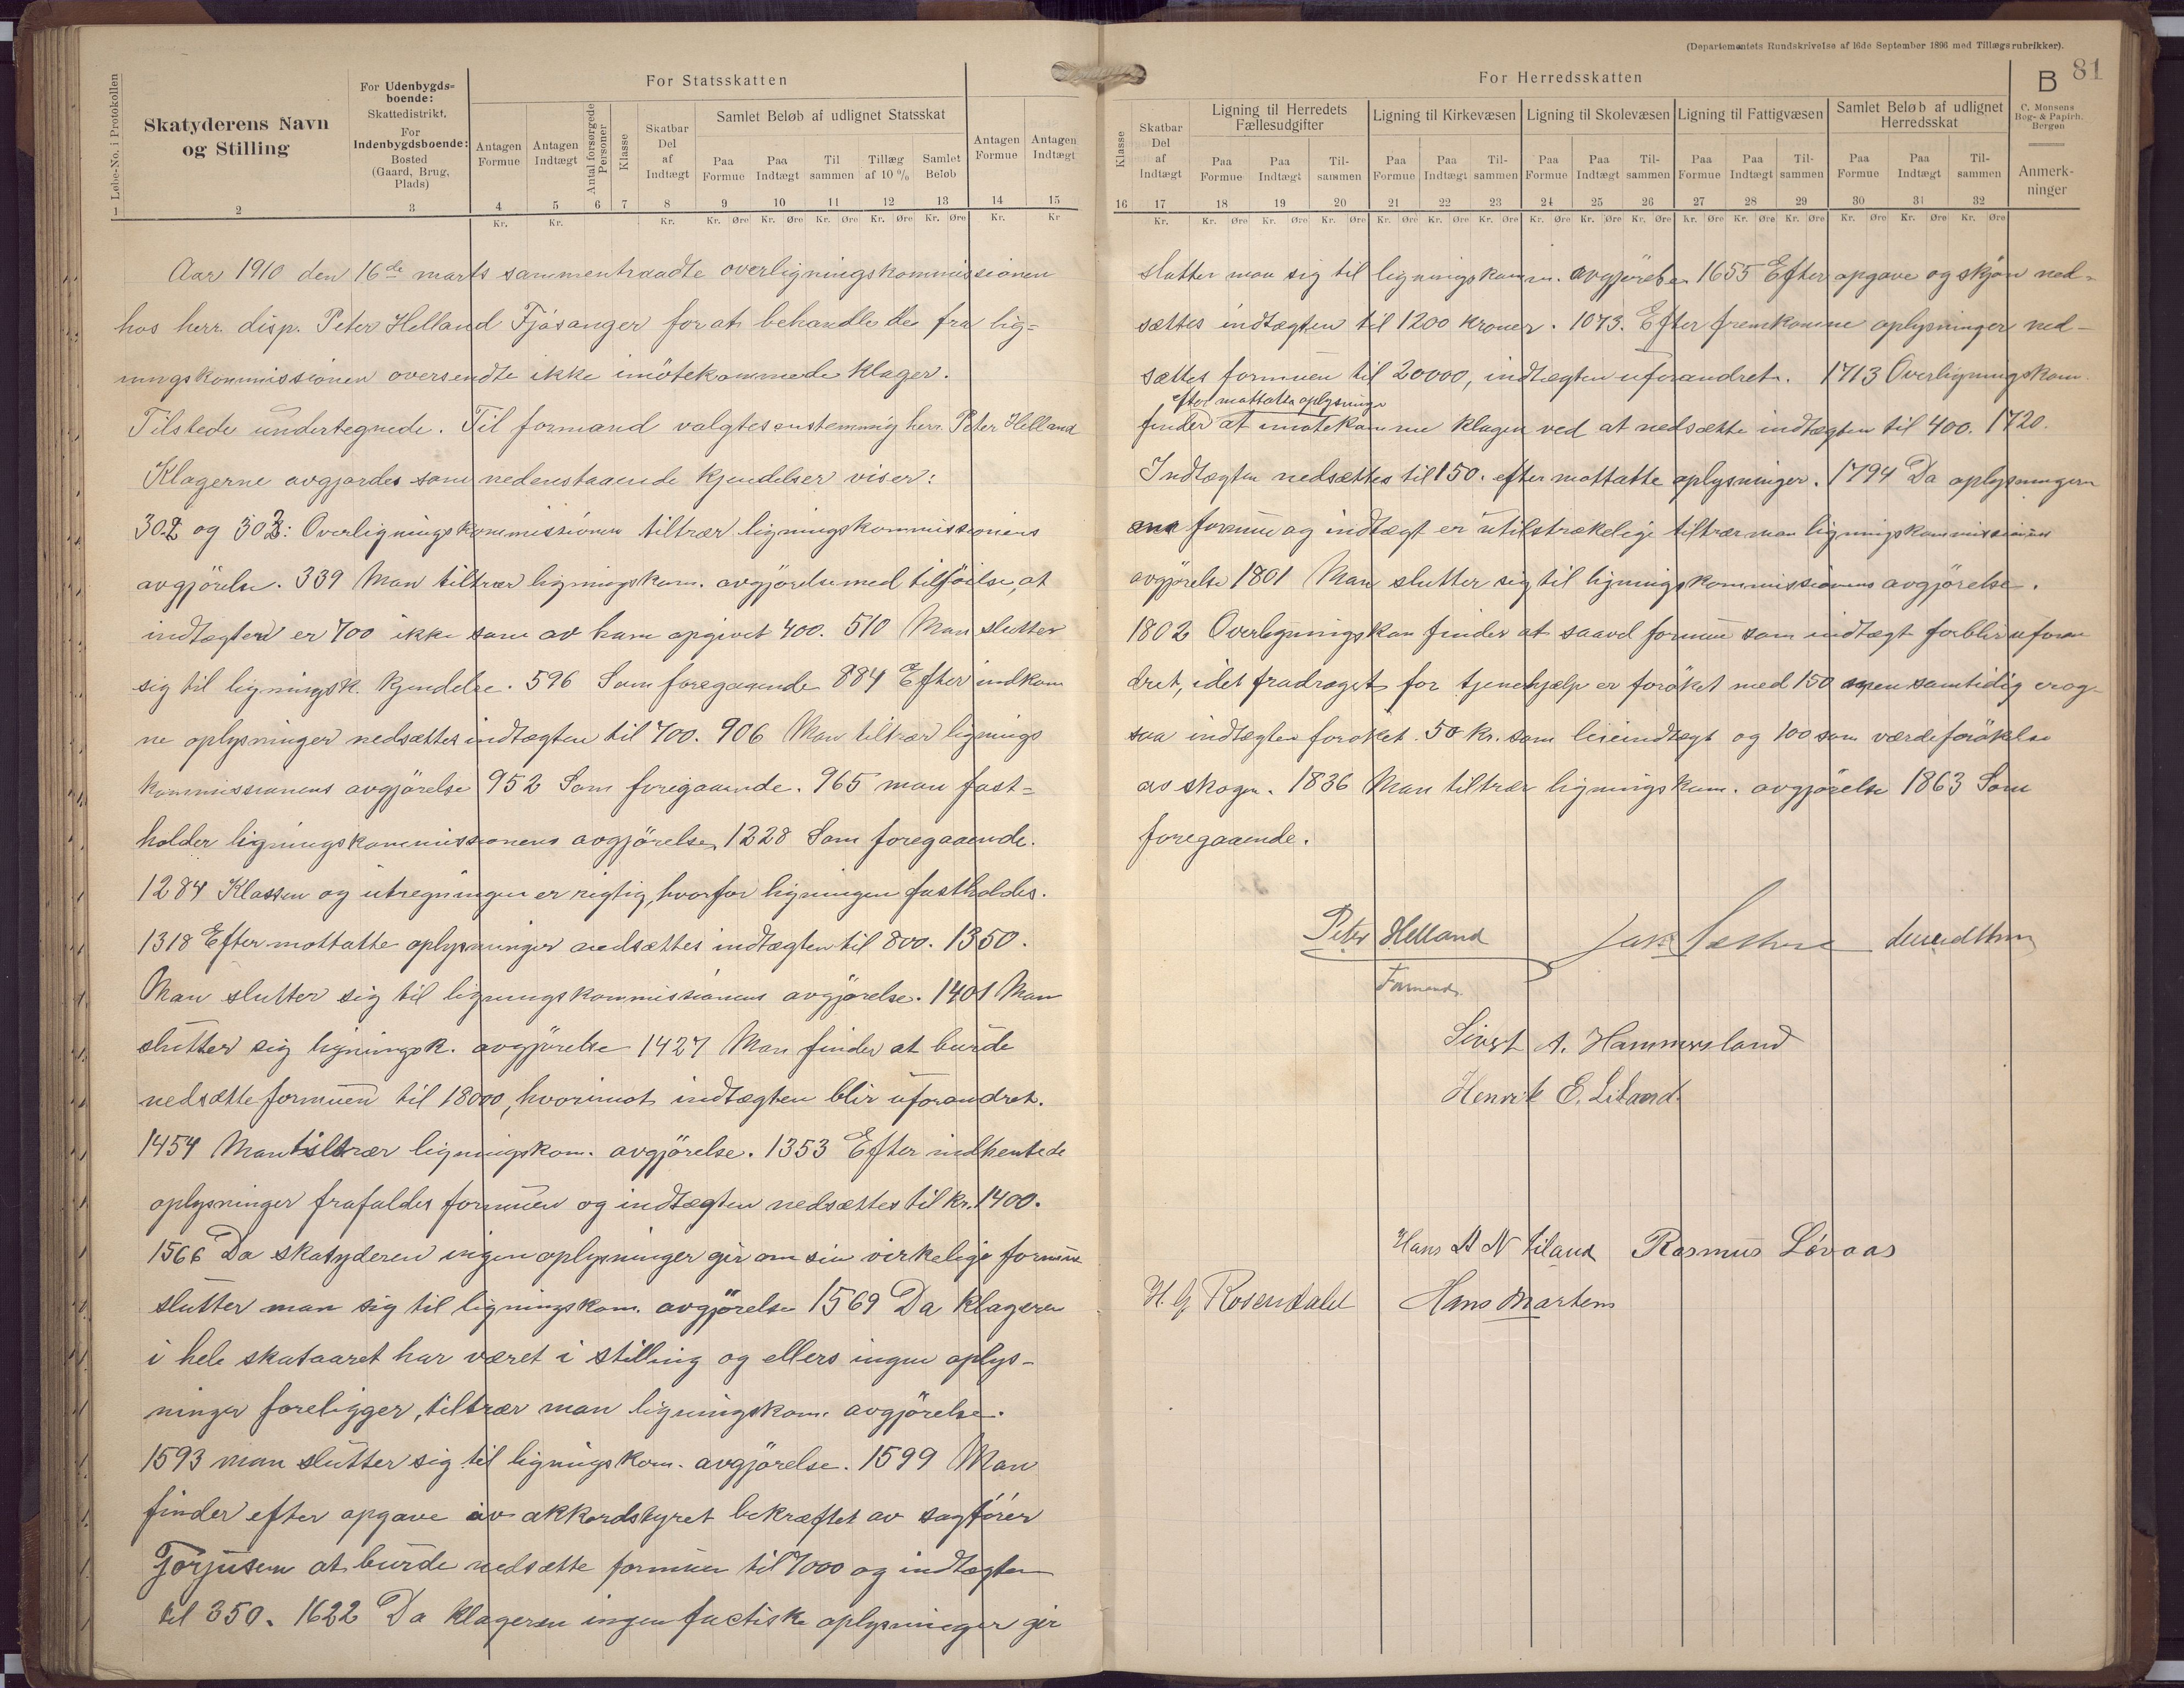 (Departementets Rundskrivelse af 16de September 1896 med Tillægsrubrikker).
81
Løbe-No. i Protokollen
Skatyderens Navn
og Stilling
For Udenbygds-
boende:
Skattedistrikt.
For
Indenbygdsboende:
Bosted
(Gaard, Brug,
Plads)
For Statsskatten
Antagen
Formue
Antagen
Indtægt
Antal forsørgede
Personer
Klasse
Skatbar
Del
af
Indtægt
Samlet Beløb af udlignet Statsskat
Paa
Formue
Paa
Indtægt
Til
sammen
Tillæg
af 10 %
Samlet
Beløb
Antagen
Formue
Antagen
Indtægt
1 2 3 4 5 6 7 8 9 10 11 12 13 14 15
Kr. Kr. Kr. Kr. Øre Kr. Øre Kr. Øre Kr. Øre Kr. Øre Kr. Kr
Aar 1910 den 16de marts sammentraadte overligningskommissionen
hos herr. disp. Peter Helland Fjösanger for at behandle de fra lig=
ningskommissionen oversendte ikke imötekommede klager.
Tilstede undertegnede. Til formand valgtes enstemmig herr. Peter Helland
Klagerne avgjordes som nedenstaaende kjendelser viser:
302 og 303: Overligningskommissionen tiltrær ligningskommissionens
avgjörelse. 339 Man tiltrær ligningskom. avgjörelse med tilföielse, at
indtægten er 700 ikke som av ham opgivet 400. 510 Man slutter
sig til ligningsk. kjendelse. 596 Som foregaaende 884 Efter indkom
ne oplysninger nedsættes indtægten til 700. 906 Man tiltrær lignings
kommissionens avgjörelse 952 Som foregaaende. 965 man fast=
holder ligningskommissionens avgjörelse, 1228 Som foregaaende.
1284 Klassen og utregningen er rigtig, hvorfor ligningen fastholdes.
1318 Efter mottatte oplysninger nedsættes indtægten til 800. 1350.
Man slutter sig til ligningskommissionens avgjörelse. 1401 Man
slutter sig ligningsk. avgjörelse 1427 Man finder at burde
nedsætte formuen til 18000, hvorimot indtægten blir uforandret.
1454 Man tiltrær ligningskom. avgjörelse. 1353 Efter indhentede
oplysninger frafaldes formuen og indtægten nedsættes til kr. 1400.
1566 Da skatyderen ingen oplysninger gir om sin virkelige formue
slutter man sig til ligningskom. avgjörelse 1569 Da klageren
i hele skataaret har været i stilling og ellers ingen oplys-
ninger foreligger, tiltrær man ligningskom. avgjörelse.
1593 man slutter sig til ligningskom. avgjörelse. 1599 Man
finder efter opgave av akkordstyret bekræftet av sagförer
Torjusen at burde nedsætte formuen til 7000 og indtægten
til 350. 1622 Da klageren ingen factiske oplysninger gir
For Herredsskatten
Klasse
Skatbar
Del
af
Indtægt
Ligning til Herredets
Fællesudgifter
Ligning til Kirkevæsen
Ligning til Skolevæsen
Ligning til Fattigvæsen
Samlet Beløb af udlignet
Herredsskat
B
C. Monsens
Bog- & Papirh.
Bergen
Anmerk-
ninger
Paa
Formue
Paa
Indtægt
Til-
sammen
Paa
Formue
Paa
Indtægt
Til-
sammen
Paa
Formue
Paa
Indtægt
Til-
sammen
Paa
Formue
Paa
Indtægt
Til-
sammen
Paa
Formue
Paa
Indtægt
Til-
sammen
16 17 18 19 20 21 22 23 24 25 26 27 28 29 30 31 32
Kr. Kr. Øre Kr. Øre Kr. Øre Kr. Øre Kr. Øre Kr. Øre Kr. Øre Kr. Øre Kr. Øre Kr. Øre Kr. Øre Kr. Øre Kr. Øre Kr. Øre Kr. Øre
slutter man sig til ligningskom. avgjörelse 1655 Efter opgave og skjön ned-
sættes indtægten til 1200 kroner. 1073. Efter fremkomne oplysninger ned-
sættes formuen til 20000, indtægten uforandret. 1713 Overligningskom.
efter mottatte oplysninger
finder at imötekomme klagen ved at nedsætte indtægten til 400. 1720.
Indtægten nedsættes til 150. efter mottatte oplysninger. 1794 Da oplysningerne
formue og indtægt er utilstrækelige tiltrær man ligningskommissionens
avgjörelse 1801 Man slutter sig til ligningskommissionens avgjörelse.
1802 Overligningskom finder at saavel formue som indtægt forblir uforan
dret, idet fradraget for tjenehjælp er foröket med 150 men samtidig er og-
saa indtægten foröket 50 kr. som leieindtægt og 100 som værdiforökelse
av skogen. 1836 Man tiltrær ligningskom. avgjörelse 1863 Som
foregaaende.
Peter Helland
Formand
Sivert A. Hammersland
Henrik E. Liland
Hans A N Liland Rasmus Lövaas
H. G Rosendahl Hans Martens